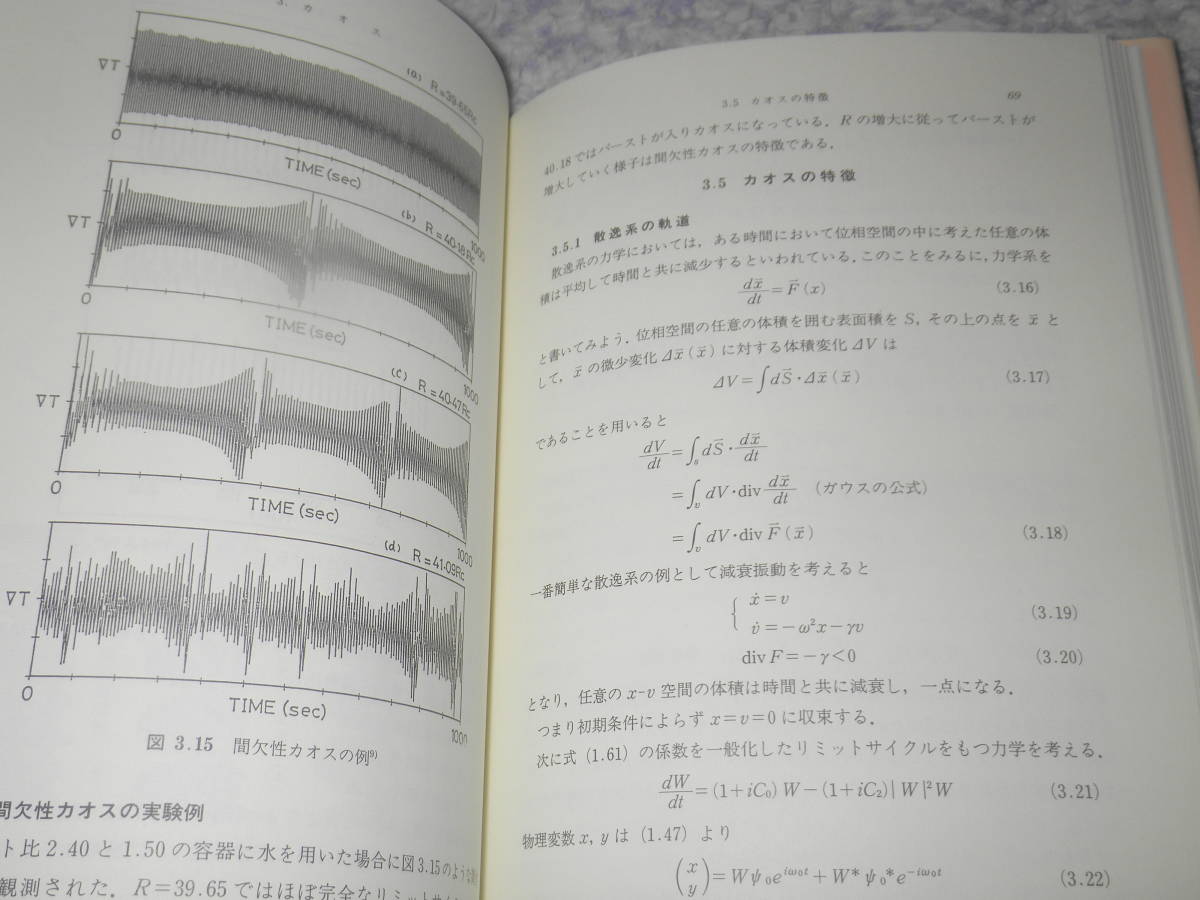 3. カオス
(a) R=39.65Rc
▽T
0
TIME (sec)
1000
(b) R=40.18Rc
▽T
0
TIME (sec)
1000
(c) R=40.47Rc
▽T
0
TIME (sec)
1000
(d) R=41.09Rc
▽T
0
TIME (sec)
1000
図 3.15 間欠性カオスの例⁹⁾
間欠性カオスの実験例
ト比2.40と1.50の容器に水を用いた場合に図3.15のような
観測された.R=39.65ではほぼ完全なリミット
3.5 カオスの特徴 69
40.18ではバーストが入りカオスになっている.Rの増大に従ってバーストが
増大していく様子は間欠性カオスの特徴である.
3.5 カオスの特徴
3.5.1 散逸系の軌道
散逸系の力学においては,ある時間において位相空間の中に考えた任意の体
積は平均して時間と共に減少するといわれている.このことをみるに,力学系を
dx̄/dt=F̄(x) (3.16)
と書いてみよう.位相空間の任意の体積を囲む表面積をS,その上の点をx̄と
して,x̄の微少変化Δx̄(x̄)に対する体積変化ΔVは
ΔV=∫dS̄・Δx̄(x̄) (3.17)
であることを用いると
dV/dt=∫ₛdS̄・dx̄/dt
=∫ᵥdV・div dx̄/dt (ガウスの公式)
=∫ᵥdV・div F̄(x̄) (3.18)
一番簡単な散逸系の例として減衰振動を考えると
{ ẋ=v
v̇=-ω²x-γv (3.19)
div F=-γ<0 (3.20)
となり,任意のx-v空間の体積は時間と共に減衰し,一点になる.
つまり初期条件によらずx=v=0に収束する.
次に式(1.61)の係数を一般化したリミットサイクルをもつ力学を考える.
dW/dt=(1+iC₀)W-(1+iC₂)|W|²W (3.21)
物理変数x, yは(1.47)より
(x y)=Wψ₀e^{iω₀t}+W*ψ₀*e^{-iω₀t} (3.22)